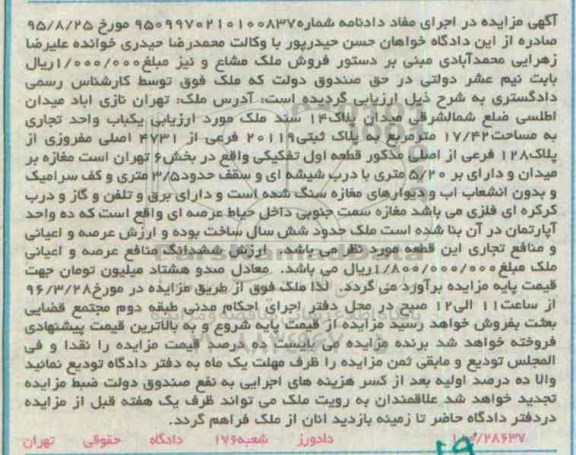 آگهی مزایده در اجرای مفاد دادنامه شماره۹۵۰۹۹۷۰۲۱۰۱۰۰۸۳۷ مورخ ۹۵/۸/۲۵
صادره از این دادگاه خواهان حسن حیدرپور با وکالت محمدرضا حیدری خوانده علیرضا
زهرایی محمدآبادی مبنی بر دستور فروش ملک مشاع و نیز مبلغ۱/۰۰۰/۰۰۰ریال
بابت نیم عشر دولتی در حق صندوق دولت که ملک فوق توسط کارشناس رسمی
دادگستری به شرح ذیل ارزیابی گردیده است: آدرس ملک: تهران نازی اباد میدان
اطلسی ضلع شمالشرقی میدان پلاک۱۴ سند ملک مورد ارزیابی یکباب واحد تجاری
به مساحت۱۷/۴۲ مترمربع به پلاک ثبتی۲۰۱۱۹ فرعی از ۴۷۳۱ اصلی مفروزی از
پلاک۱۲۸ فرعی از اصلی مذکور قطعه اول تفکیکی واقع در بخش۶ تهران است مغازه بر
میدان و دارای بر ۵/۲۰ متری با درب شیشه ای و سقف حدود۳/۵ متری و کف سرامیک
و بدون انشعاب اب و دیوارهای مغازه سنگ شده است و دارای برق و تلفن و گاز و درب
کرکره ای فلزی می باشد مغازه سمت جنوبی داخل حیاط عرصه ای واقع است که ده واحد
آپارتمان در آن بنا شده است ملک حدود شش سال ساخت بوده و ارزش عرصه و اعیانی
و منافع تجاری این قطعه مورد نظر می باشد. ارزش ششدانگ منافع عرصه و اعیانی
ملک مبلغ۱/۸۰۰/۰۰۰/۰۰۰ریال می باشد. معادل صدو هشتاد میلیون تومان جهت
قیمت پایه مزایده برآورد می گردد. لذا ملک فوق از طریق مزایده در مورخ۹۶/۳/۲۸
از ساعت۱۱ الی۱۲ صبح در محل دفتر اجرای احکام مدنی طبقه دوم مجتمع قضایی
بعثت بفروش خواهد رسید مزایده از قیمت پایه شروع و به بالاترین قیمت پیشنهادی
فروخته خواهد شد برنده مزایده می بایست ده درصد قیمت مزایده را نقدا و فی
المجلس تودیع و مابقی ثمن مزایده را ظرف مهلت یک ماه به دفتر دادگاه تودیع نمائید
والا ده درصد اولیه بعد از کسر هزینه های اجرایی به نفع صندوق دولت ضبط مزایده
تجدید خواهد شد علاقمندان به رویت ملک می تواند ظرف یک هفته قبل از مزایده
دردفتر دادگاه حاضر تا زمینه بازدید انان از ملک فراهم گردد.
۱۱۰/۲۸۶۳۷ دادورز شعبه۱۷۶ دادگاه حقوقی تهران
۱۹